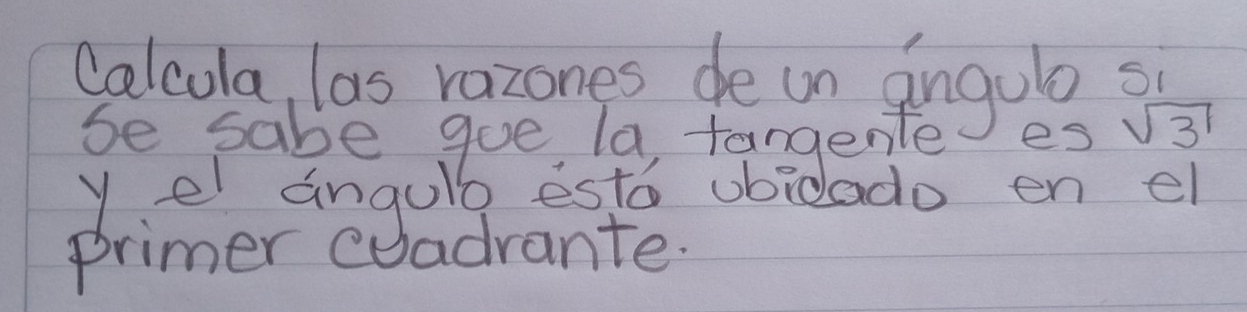 Calcula, las razones de un ángulo si
se sabe que la, tangente es √3
y el ángulo está ubidado en el
primer cuadrante.